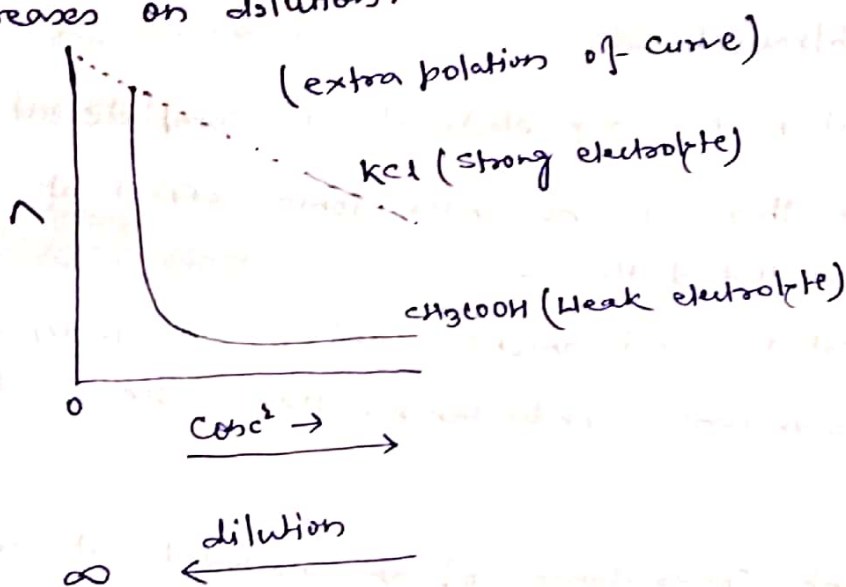 reases on dilution.
(extra polation of curve)
KCl (strong electrolyte)
Λ
CH3COOH (Weak electrolyte)
0
Conc² →
dilution
∞